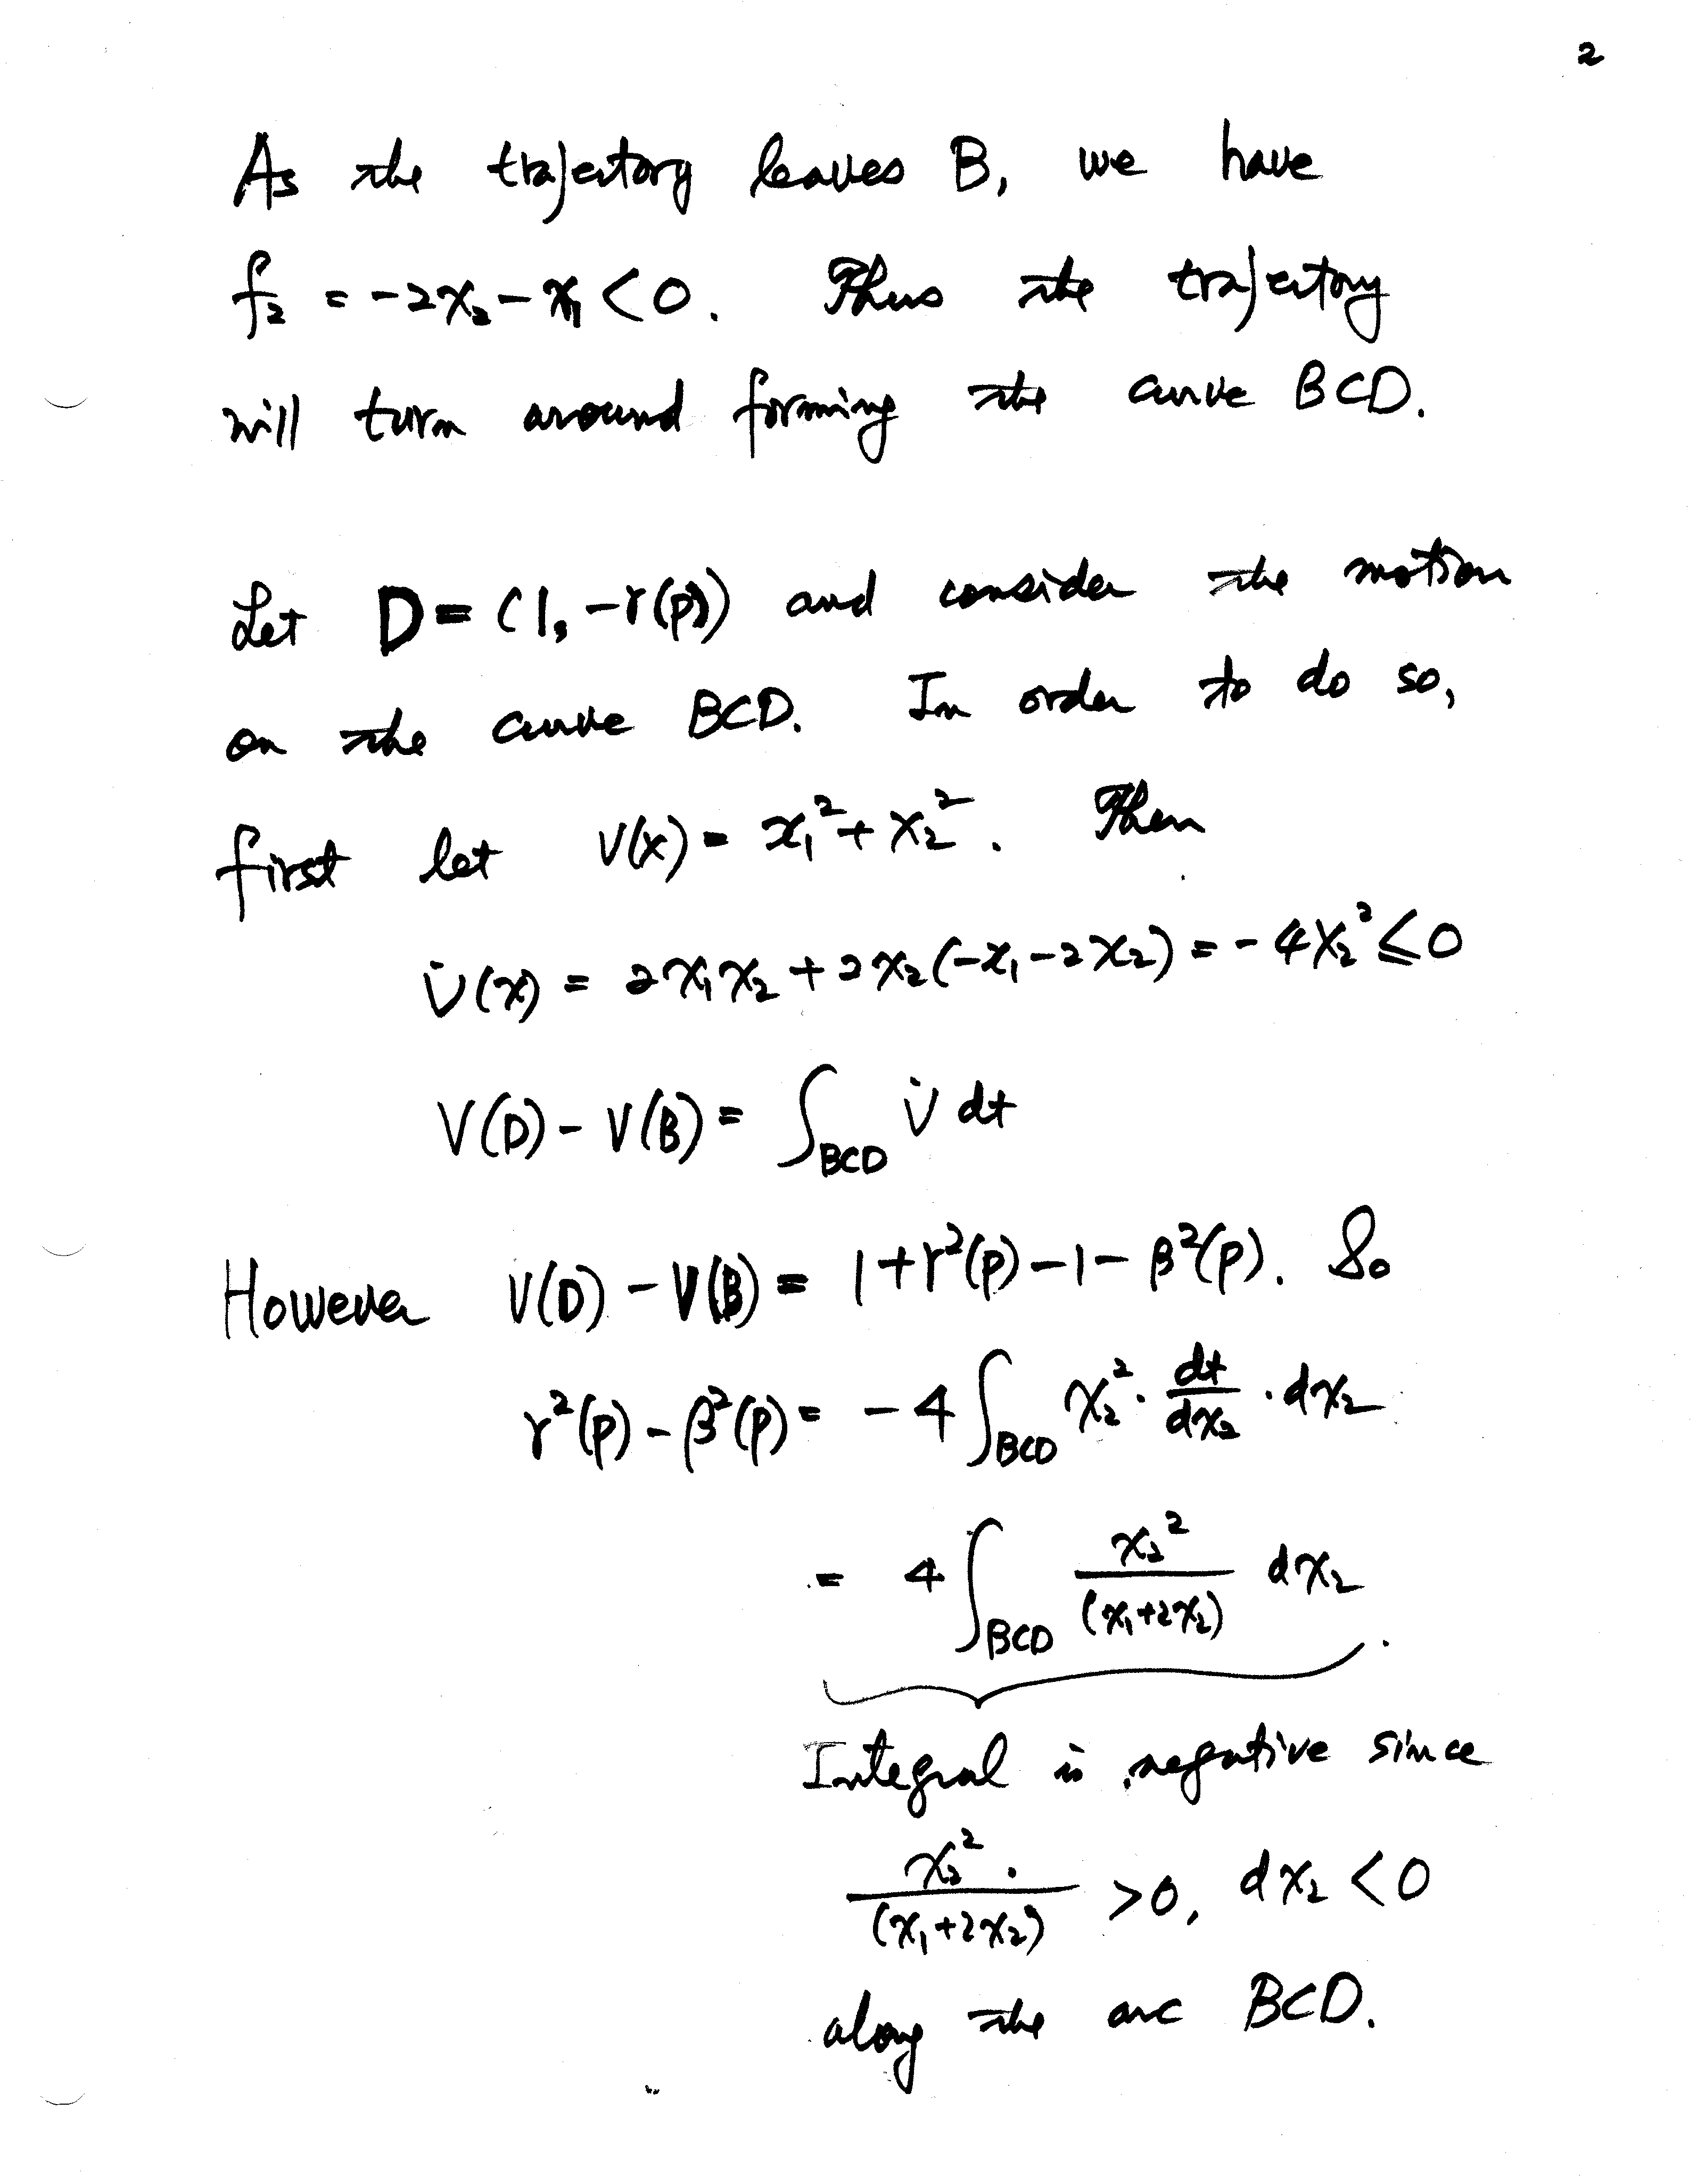 2
As the trajectory leaves B, we have
f₂ = -2x₂ - x₁ < 0. Thus the trajectory
will turn around forming the curve BCD.
Let D = (1, -γ(p)) and consider the motion
on the curve BCD. In order to do so,
first let V(x) = x₁² + x₂². Then
V̇(x) = 2x₁x₂ + 2x₂(-x₁ - 2x₂) = -4x₂² ≤ 0
V(D) - V(B) = ∫_BCD V̇ dt
However V(D) - V(B) = 1 + γ²(p) - 1 - β²(p). So
γ²(p) - β²(p) = -4 ∫_BCD x₂² · dt/dx₂ · dx₂
= 4 ∫_BCD x₂²/(x₁+2x₂) dx₂
Integral is negative since
x₂²/(x₁+2x₂) > 0, dx₂ < 0
along the arc BCD.